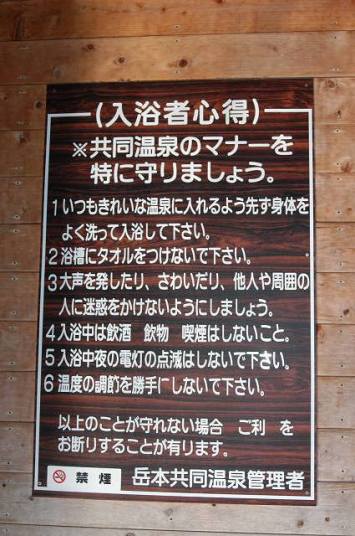 (入浴者心得)
※共同温泉のマナーを
特に守りましょう。
1いつもきれいな温泉に入れるよう先ず身体を
よく洗って入浴して下さい。
2浴槽にタオルをつけないで下さい。
3大声を発したり、さわいだり、他人や周囲の
人に迷惑をかけないようにしましょう。
4入浴中は飲酒 飲物 喫煙はしないこと。
5入浴中夜の電灯の点滅はしないで下さい。
6温度の調節を勝手にしないで下さい。
以上のことが守れない場合 ご利 を
お断りすることが有ります。
禁煙 岳本共同温泉管理者